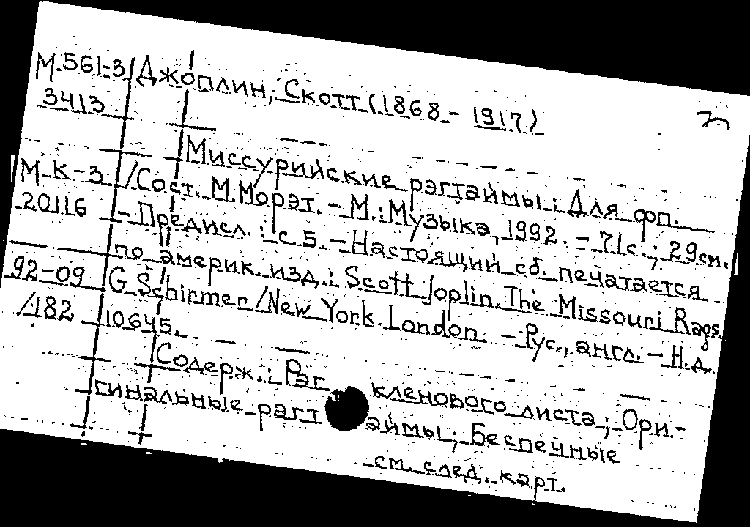 М.561-3 Джоплин, Скотт (1868 - 1917)
3413
Миссурийские рэгтаймы: Для фп.
М К-3 /Сост. М.Морэт. - М.: Музыка, 1992. - 71с.; 29см.
20116 - Предисл.: с.5. - Настоящий сб. печатается
по америк. изд.: Scott Joplin. The Missouri Rags.
92-09 G.Schirmer/New York.London. - Рус., англ. - Н.д.
/182 10645.
Содерж.: Рэг кленового листа; Ори-
гинальные рэгтаймы; Беспечные
см. след. карт.